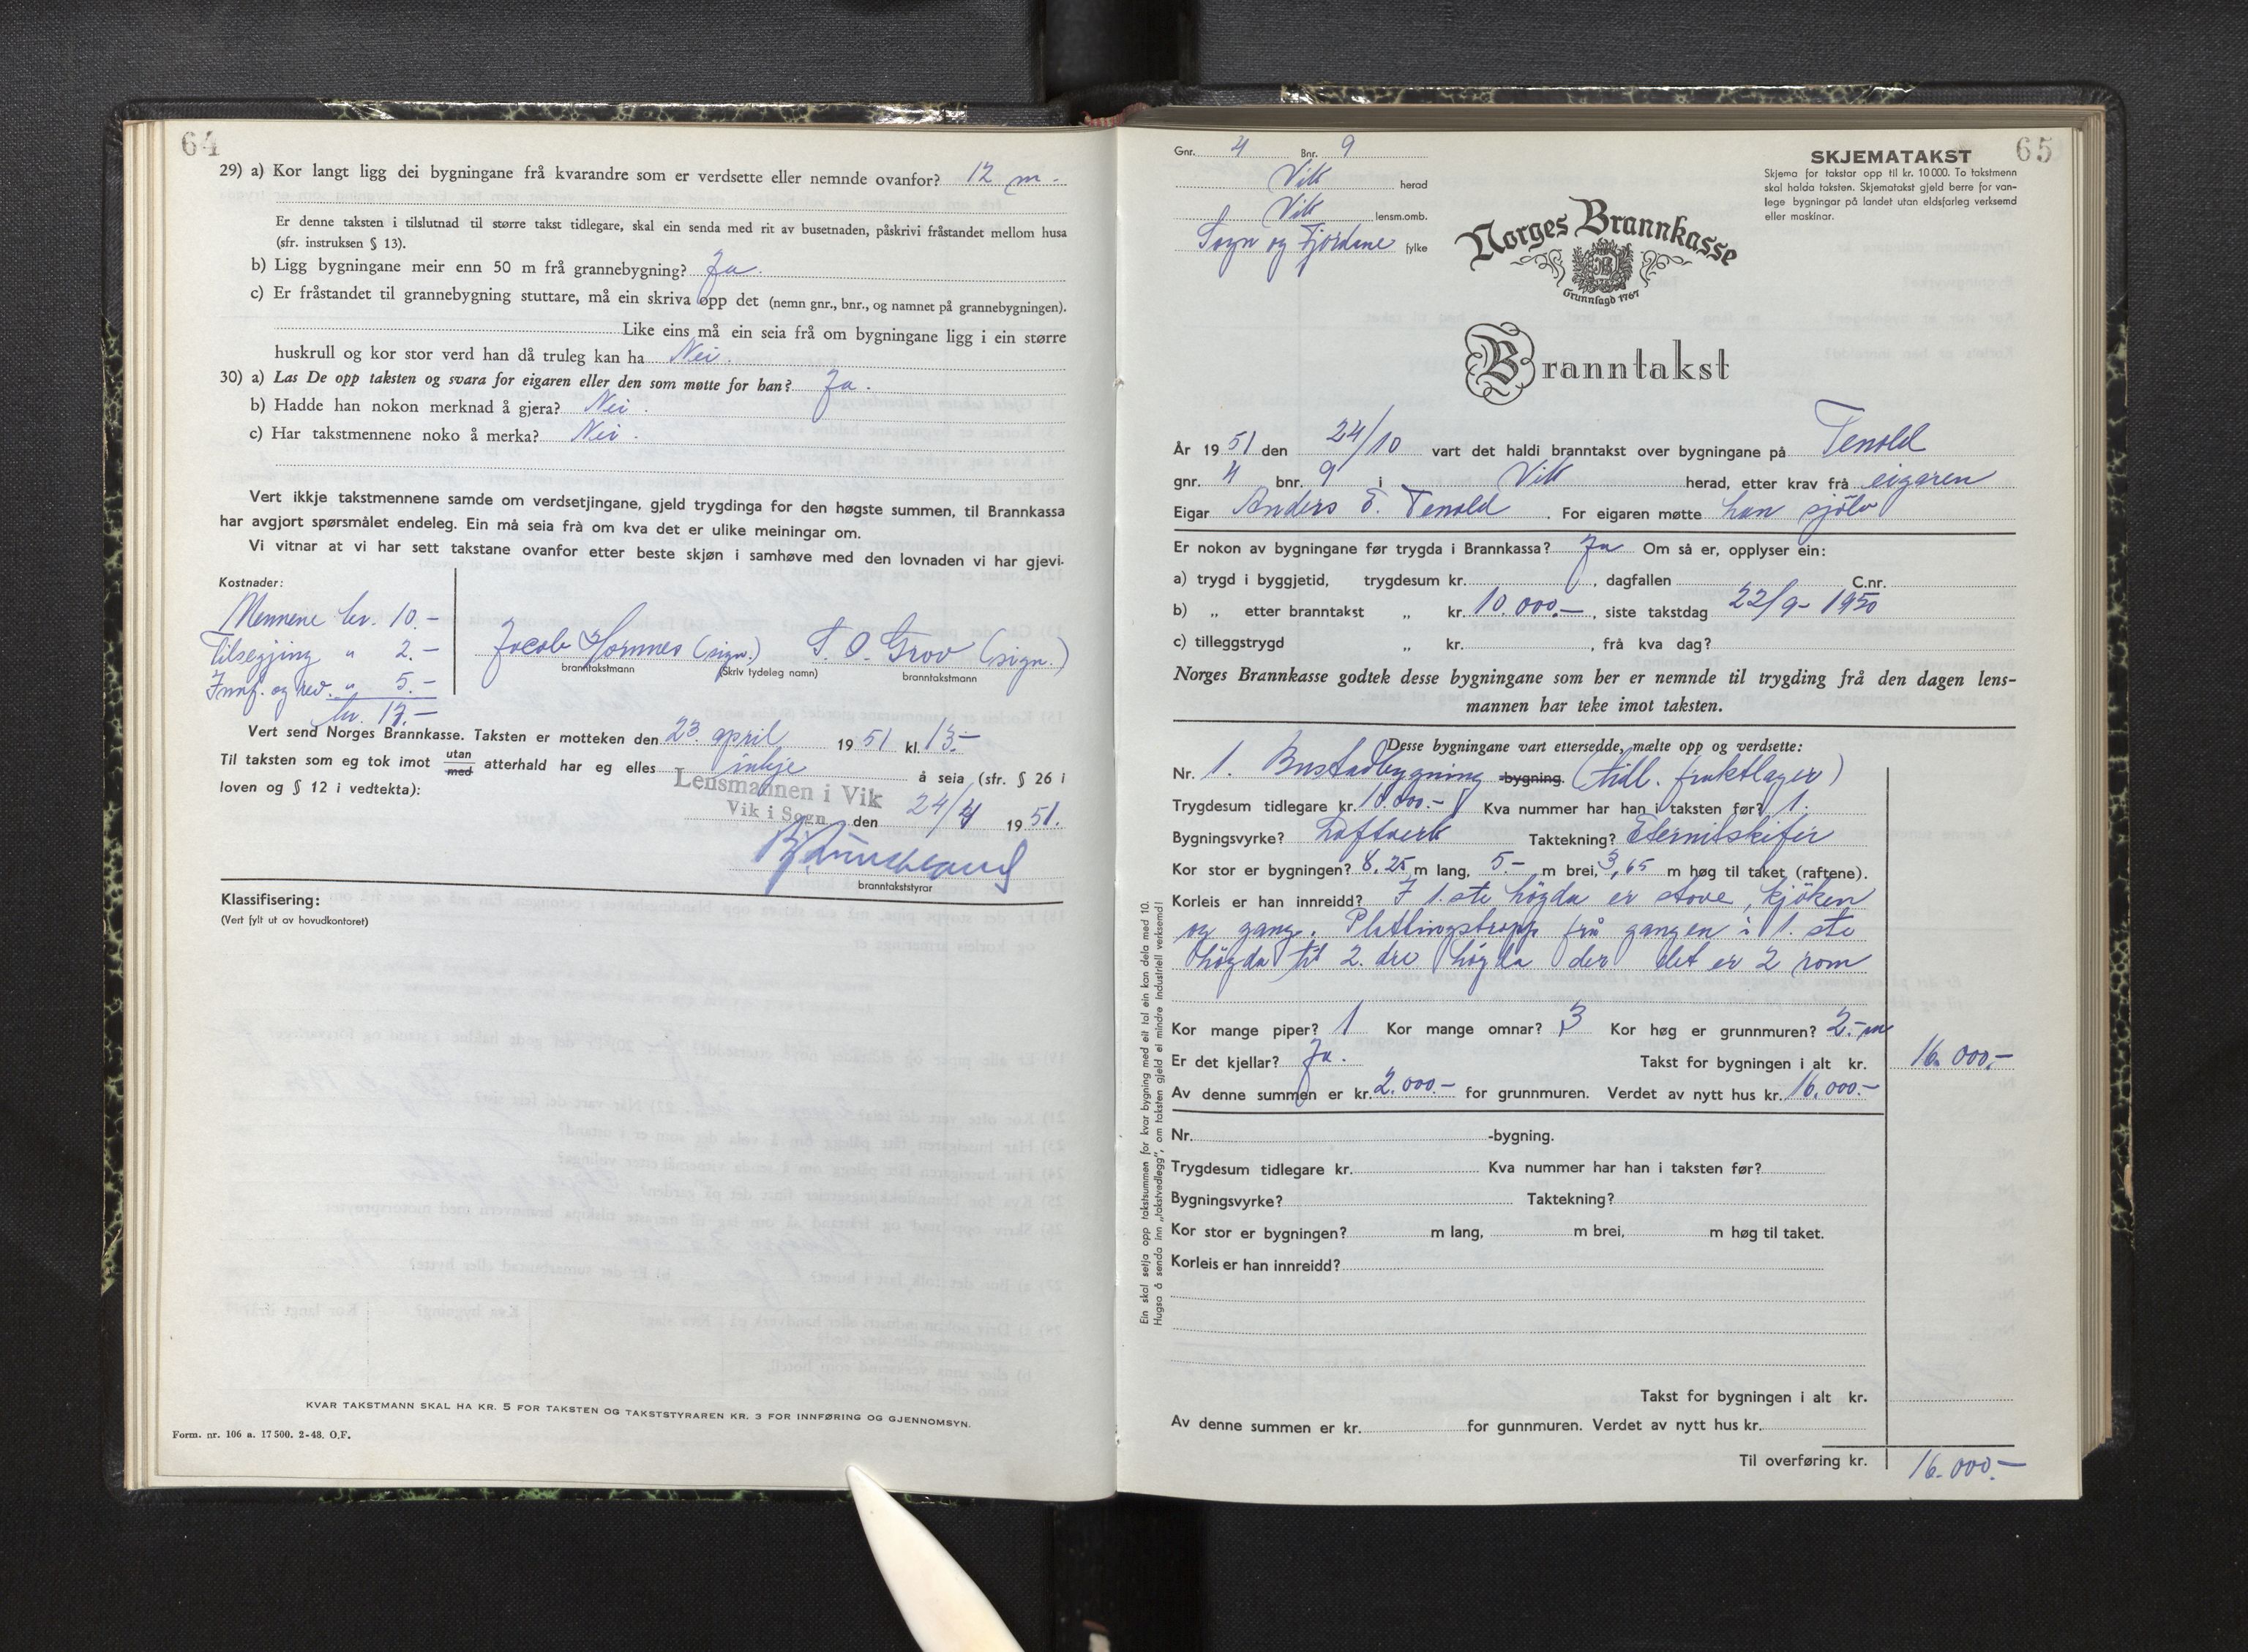 64
29) a) Kor langt ligg dei bygningane frå kvarandre som er verdsette eller nemnde ovanfor? 12 m -
Er denne taksten i tilslutnad til større takst tidlegare, skal ein senda med rit av busetnaden, påskrivi fråstandet mellom husa
(sfr. instruksen § 13).
b) Ligg bygningane meir enn 50 m frå grannebygning? Ja.
c) Er fråstandet til grannebygning stuttare, må ein skriva opp det (nemn gnr., bnr., og namnet på grannebygningen).
Like eins må ein seia frå om bygningane ligg i ein større
huskrull og kor stor verd han då truleg kan ha Nei.
30) a) Las De opp taksten og svara for eigaren eller den som møtte for han? Ja.
b) Hadde han nokon merknad å gjera? Nei.
c) Har takstmennene noko å merka? Nei.
Vert ikkje takstmennene samde om verdsetjingane, gjeld trygdinga for den høgste summen, til Brannkassa
har avgjort spørsmålet endeleg. Ein må seia frå om kva det er ulike meiningar om.
Vi vitnar at vi har sett takstane ovanfor etter beste skjøn i samhøve med den lovnaden vi har gjevi.
Kostnader:
Mennene kr. 10.-
Tilsegjing " 2.-
Innf. og rev. " 5.-
kr. 17.-
Jacob Hornnes (sign.) S. O. Grov (sign.)
branntakstmann (Skriv tydeleg namn) branntakstmann
Vert send Norges Brannkasse. Taksten er motteken den 23. april 1951 kl. 13.-
Til taksten som eg tok imot utan/med atterhald har eg elles inkje å seia (sfr. § 26 i
loven og § 12 i vedtekta):
Lensmannen i Vik
Vik i Sogn den 24/4 1951.
branntakststyrar
Klassifisering:
(Vert fylt ut av hovudkontoret)
KVAR TAKSTMANN SKAL HA KR. 5 FOR TAKSTEN OG TAKSTSTYRAREN KR. 3 FOR INNFØRING OG GJENNOMSYN.
Form. nr. 106 a. 17500. 2-48. O.F.
65
Gnr. 4 Bnr. 9
Vik herad
Vik lensm.omb.
Sogn og Fjordane fylke
SKJEMATAKST
Skjema for takstar opp til kr. 10000. To takstmenn
skal halda taksten. Skjematakst gjeld berre for van-
lege bygningar på landet utan eldsfarleg verksemd
eller maskinar.
Norges Brannkasse
Grunnlagd 1767
Branntakst
År 1951 den 24/10 vart det haldi branntakst over bygningane på Tenold
gnr. 4 bnr. 9 i Vik herad, etter krav frå eigaren
Eigar Anders E. Tenold. For eigaren møtte han sjølv
Er nokon av bygningane før trygda i Brannkassa? Ja Om så er, opplyser ein:
a) trygd i byggjetid, trygdesum kr. , dagfallen C.nr.
b) „ etter branntakst „ kr. 10.000.-, siste takstdag 22/9- 1950
c) tilleggstrygd „ kr. , frå kva dag?
Norges Brannkasse godtek desse bygningane som her er nemnde til trygding frå den dagen lens-
mannen har teke imot taksten.
Desse bygningane vart ettersedde, mælte opp og verdsette:
Nr. 1. Bustadbygning -bygning. (tidl. fruktlager)
Trygdesum tidlegare kr. 10.000.- Kva nummer har han i taksten før? 1.
Bygningsvyrke? Laftverk Taktekning? Eternitskifer
Kor stor er bygningen? 8,25 m lang, 5.- m brei, 3,65 m høg til taket (raftene).
Korleis er han innreidd? I 1.ste högda er stove, kjöken
og gang. Plattingstropp frå gangen i 1. ste
högda til 2. dre högda der det er 2 rom
Kor mange piper? 1 Kor mange omnar? 3 Kor høg er grunnmuren? 2.- m
Er det kjellar? Ja. Takst for bygningen i alt kr. 16.000.-
Av denne summen er kr. 2.000.- for grunnmuren. Verdet av nytt hus kr. 16.000.-
Nr. -bygning.
Trygdesum tidlegare kr. Kva nummer har han i taksten før?
Bygningsvyrke? Taktekning?
Kor stor er bygningen? m lang, m brei, m høg til taket.
Korleis er han innreidd?
Takst for bygningen i alt kr.
Av denne summen er kr. for gunnmuren. Verdet av nytt hus kr.
Til overføring kr. 16.000.-
Ein skal setja opp takstsummen for kvar bygning med eit tal ein kan dela med 10.
Hugsa å senda inn „takstvedlegg", om taksten gjeld ei mindre industriell verksemd!